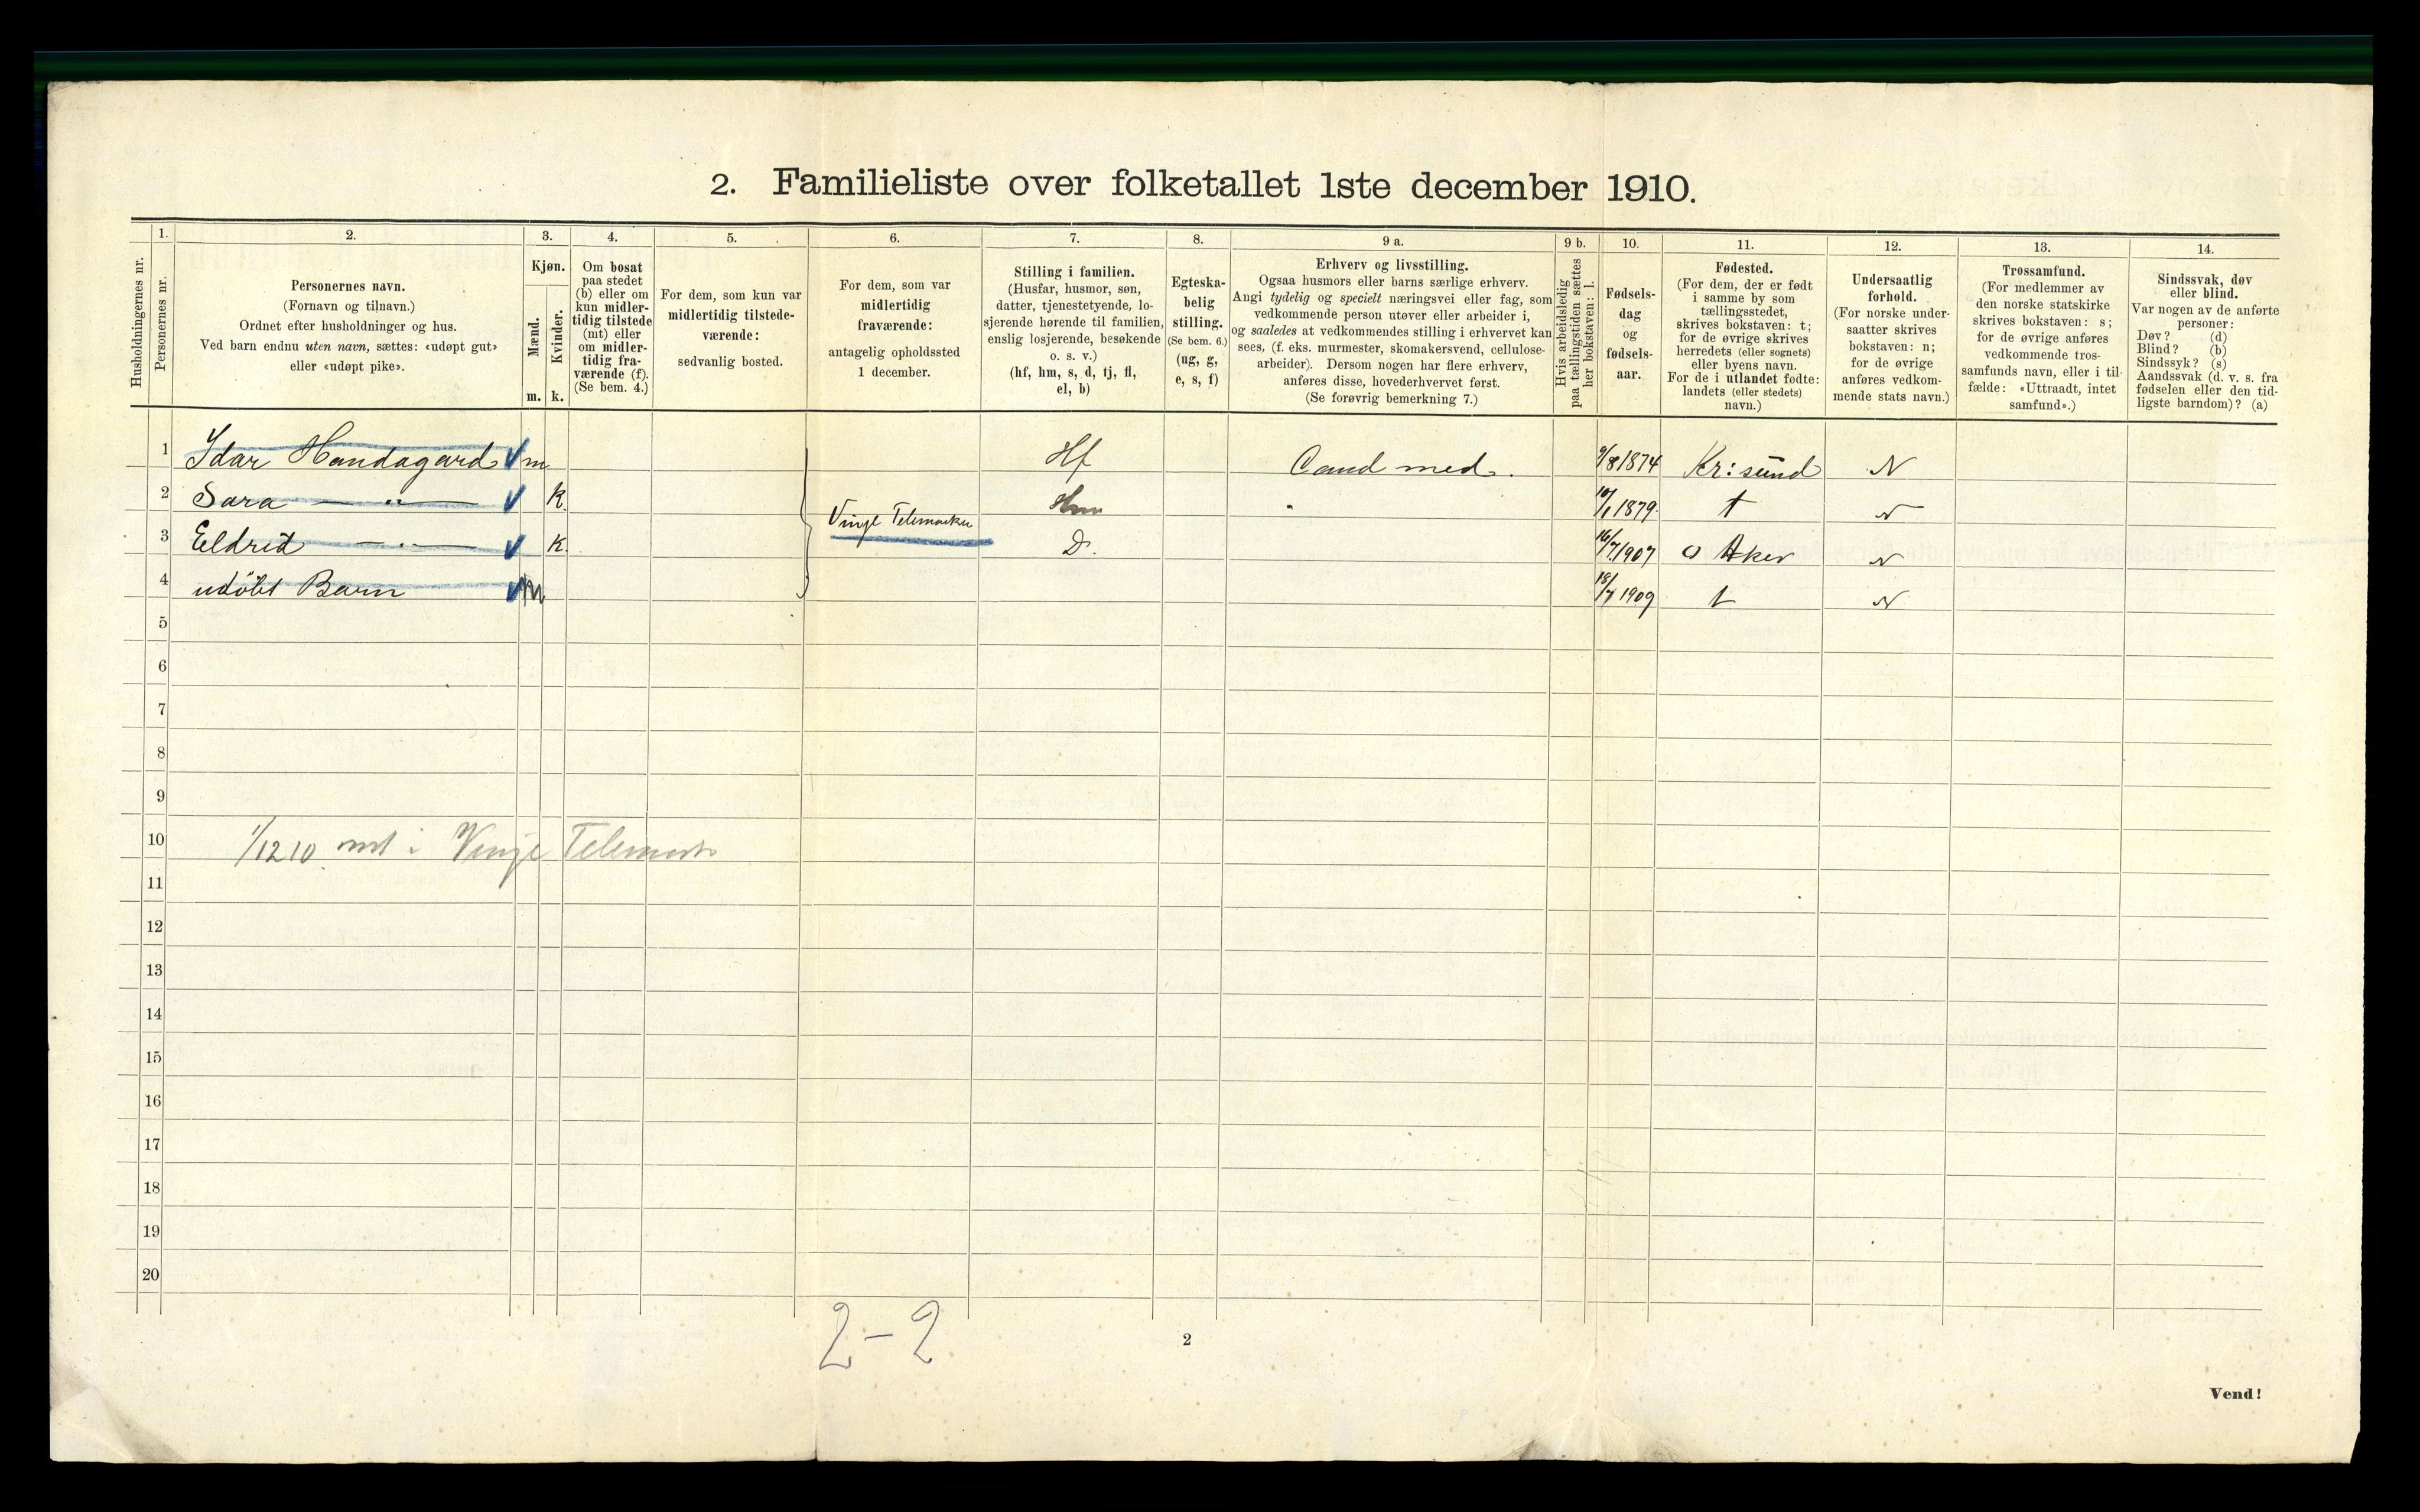 2. Familieliste over folketallet 1ste december 1910.
1. 2. 3. 4. 5. 6. 7. 8. 9 a. 9 b. 10. 11. 12. 13. 14.
Husholdningernes nr.
Personernes nr.
Personernes navn.
(Fornavn og tilnavn.)
Ordnet efter husholdninger og hus.
Ved barn endnu uten navn, sættes: «udøpt gut»
eller «udøpt pike».
Kjøn.
Mænd.
Kvinder.
m. k.
Om bosat
paa stedet
(b) eller om
kun midler-
tidig tilstede
(mt) eller
om midler-
tidig fra-
værende (f).
(Se bem. 4.)
For dem, som kun var
midlertidig tilstede-
værende:
sedvanlig bosted.
For dem, som var
midlertidig
fraværende:
antagelig opholdssted
1 december.
Stilling i familien.
(Husfar, husmor, søn,
datter, tjenestetyende, lo-
sjerende hørende til familien,
enslig losjerende, besøkende
o. s. v.)
(hf, hm, s, d, tj, fl,
el, b)
Egteska-
belig
stilling.
(Se bem. 6.)
(ug, g,
e, s, f)
Erhverv og livsstilling.
Ogsaa husmors eller barns særlige erhverv.
Angi tydelig og specielt næringsvei eller fag, som
vedkommende person utøver eller arbeider i,
og saaledes at vedkommendes stilling i erhvervet kan
sees, (f. eks. murmester, skomakersvend, cellulose-
arbeider). Dersom nogen har flere erhverv,
anføres disse, hovederhvervet først.
(Se forøvrig bemerkning 7.)
Hvis arbeidsledig
paa tællingstiden sættes
her bokstaven: l.
Fødsels-
dag
og
fødsels-
aar.
Fødested.
(For dem, der er født
i samme by som
tællingsstedet,
skrives bokstaven: t;
for de øvrige skrives
herredets (eller sognets)
eller byens navn.
For de i utlandet fødte:
landets (eller stedets)
navn.)
Undersaatlig
forhold.
(For norske under-
saatter skrives
bokstaven: n;
for de øvrige
anføres vedkom-
mende stats navn.)
Trossamfund.
(For medlemmer av
den norske statskirke
skrives bokstaven: s;
for de øvrige anføres
vedkommende tros-
samfunds navn, eller i til-
fælde: «Uttraadt, intet
samfund».)
Sindssvak, døv
eller blind.
Var nogen av de anførte
personer:
Døv? (d)
Blind? (b)
Sindssyk? (s)
Aandssvak (d. v. s. fra
fødselen eller den tid-
ligste barndom)? (a)
1 Idar Handagard m Hf Cand med. 9/8 1874 Kr:sund N
2 Sara — " — k. Hm 10/1 1879 t N
Vinje Telemarken
3 Eldrid — " — k. D. 16/7 1907 Aker N
4 udöbt Barn m 18/7 1909 t N
5
6
7
8
9
10 1/12 10 mt i Vinje Telemark
11
12
13
14
15
16
17
18
19
20
2-2
2
Vend!